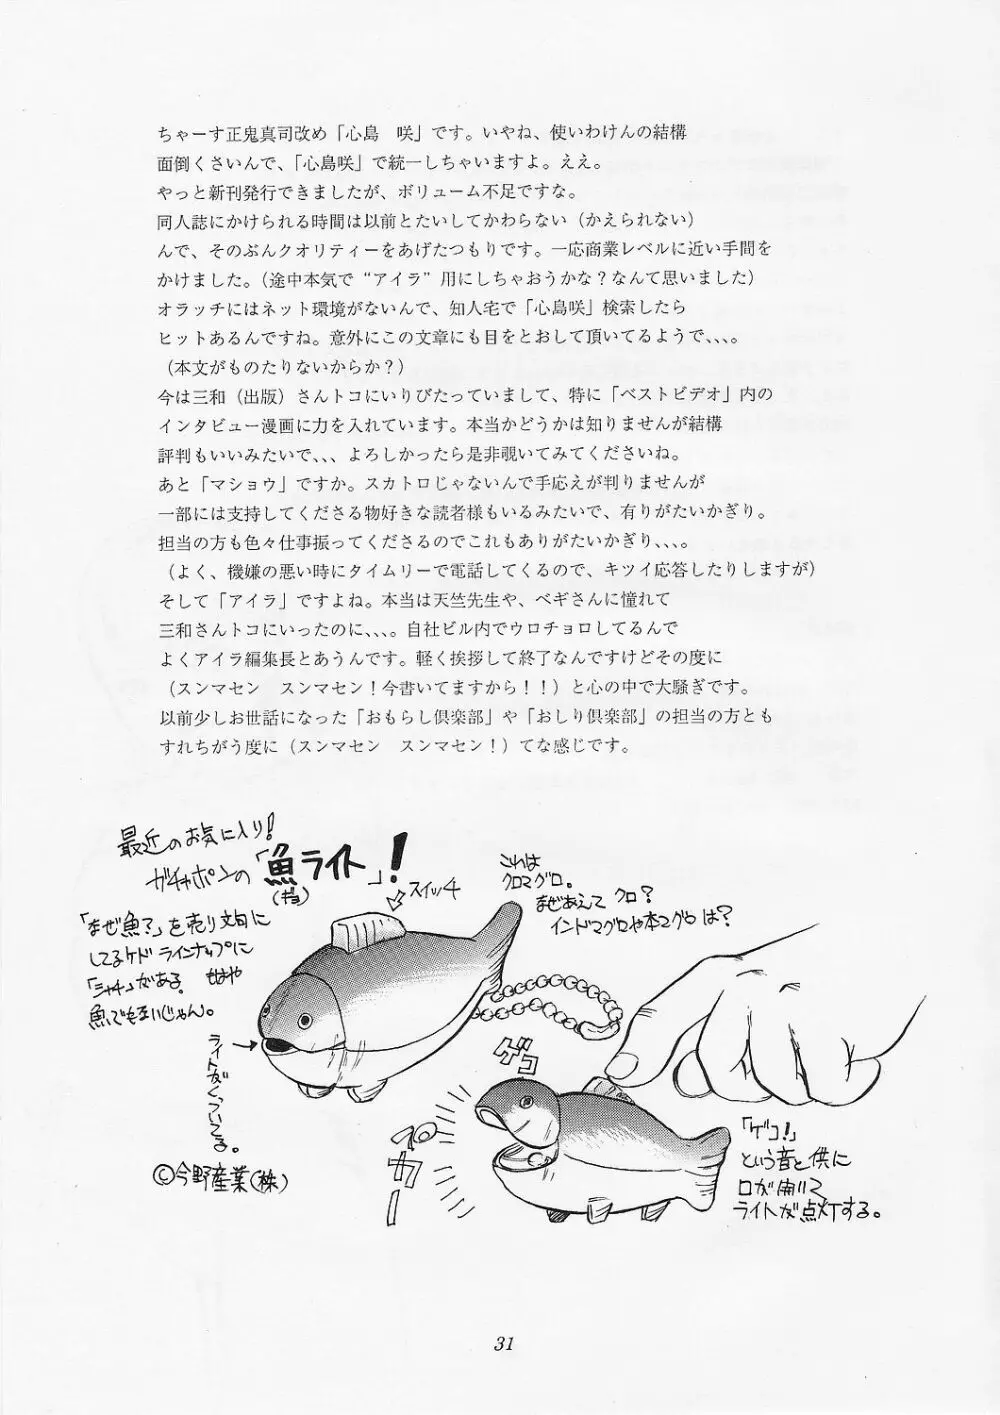 ちゃーす正鬼真司改め「心島　咲」です。いやね、使いわけんの結構
面倒くさいんで、「心島咲」で統一しちゃいますよ。ええ。
やっと新刊発行できましたが、ボリューム不足ですな。
同人誌にかけられる時間は以前とたいしてかわらない（かえられない）
んで、そのぶんクオリティーをあげたつもりです。一応商業レベルに近い手間を
かけました。（途中本気で“アイラ”用にしちゃおうかな？なんて思いました）
オラッチにはネット環境がないんで、知人宅で「心島咲」検索したら
ヒットあるんですね。意外にこの文章にも目をとおして頂いてるようで､､､。
（本文がものたりないからか？）
今は三和（出版）さんトコにいりびたっていまして、特に「ベストビデオ」内の
インタビュー漫画に力を入れています。本当かどうかは知りませんが結構
評判もいいみたいで､､､、よろしかったら是非覗いてみてくださいね。
あと「マショウ」ですか。スカトロじゃないんで手応えが判りませんが
一部には支持してくださる物好きな読者様もいるみたいで、有りがたいかぎり。
担当の方も色々仕事振ってくださるのでこれもありがたいかぎり､､､。
（よく、機嫌の悪い時にタイムリーで電話してくるので、キツイ応答したりしますが）
そして「アイラ」ですよね。本当は天竺先生や、ベギさんに憧れて
三和さんトコにいったのに､､､。自社ビル内でウロチョロしてるんで
よくアイラ編集長とあうんです。軽く挨拶して終了なんですけどその度に
（スンマセン　スンマセン！今書いてますから！！）と心の中で大騒ぎです。
以前少しお世話になった「おもらし倶楽部」や「おしり倶楽部」の担当の方とも
すれちがう度に（スンマセン　スンマセン！）てな感じです。
最近のお気に入り！
ガチャポンの「魚ライト」！
(ギョ)
スイッチ
これは
クロマグロ。
なぜあえて クロ？
インドマグロや本マグロは？
「なぜ魚？」を売り文句に
してるケド ラインナップに
「シャチ」がある。 もはや
魚でもないじゃん。
ライトがくっついてる。
©今野産業(株)
ゲコ
ピカー
「ゲコ！」
という音と供に
口が開いて
ライトが点灯する。
31